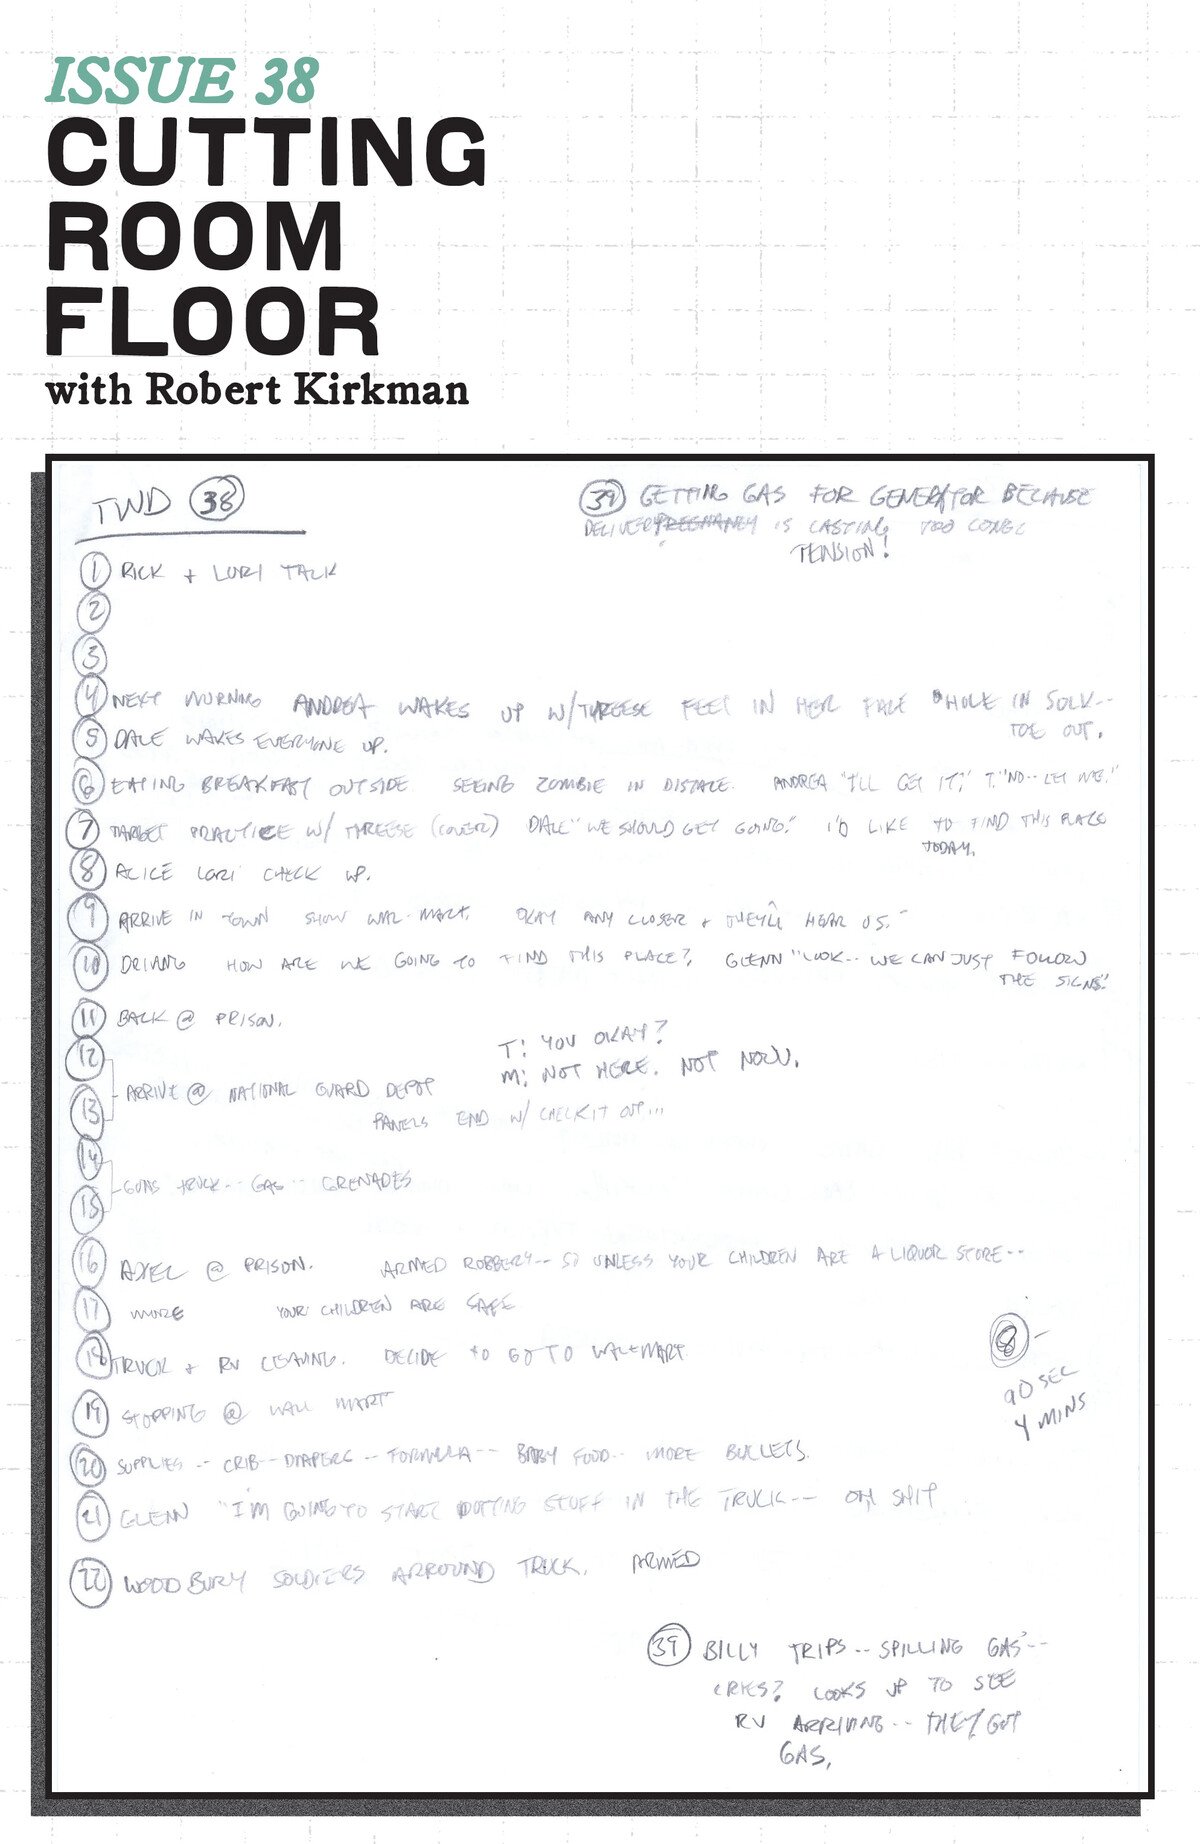 ISSUE 38
CUTTING
ROOM
FLOOR
with Robert Kirkman
TWD 38
39 GETTING GAS FOR GENERATOR BECAUSE
DELIVERY PREGNANCY IS LASTING TOO LONG
TENSION!
1 RICK + LORI TALK
2
3
4 NEXT MORNING ANDREA WAKES UP W/THREESE FEET IN HER FACE HOLE IN SOCK--
TOE OUT.
5 DALE WAKES EVERYONE UP.
6 EATING BREAKFAST OUTSIDE. SEEING ZOMBIE IN DISTACE. ANDREA "I'LL GET IT," T. "NO-- LET ME."
7 TARGET PRACTICE W/ THREESE (COVER) DALE "WE SHOULD GET GOING." I'D LIKE TO FIND THIS PLACE
TODAY.
8 ALICE LORI CHECK UP.
9 ARRIVE IN TOWN SHOW WAL-MART. OKAY ANY CLOSER + THEY'LL HEAR US."
10 DRIVING HOW ARE WE GOING TO FIND THIS PLACE? GLENN "LOOK-- WE CAN JUST FOLLOW
THE SIGNS."
11 BACK @ PRISON.
T: YOU OKAY?
M: NOT HERE. NOT NOW.
12
13 ARRIVE @ NATIONAL GUARD DEPOT
PANELS END W/ CHECK IT OUT...
14
15 GUNS TRUCK-- GAS-- GRENADES
16 AXEL @ PRISON. ARMED ROBBERY-- SO UNLESS YOUR CHILDREN ARE A LIQUOR STORE--
17 MORE YOUR CHILDREN ARE SAFE
18 TRUCK + RV LEAVING. DECIDE TO GO TO WALMART.
8 -
90 SEC
4 MINS
19 STOPPING @ WALL MART
20 SUPPLIES -- CRIB-- DIAPERS -- FORMULA-- BABY FOOD-- MORE BULLETS.
21 GLENN "I'M GOING TO START PUTTING STUFF IN THE TRUCK-- OH, SHIT
22 WOODBURY SOLDIERS ARROUND TRUCK. ARMED
39 BILLY TRIPS -- SPILLING GAS--
CRIES? LOOKS UP TO SEE
RV ARRIVING -- THEY GOT
GAS.